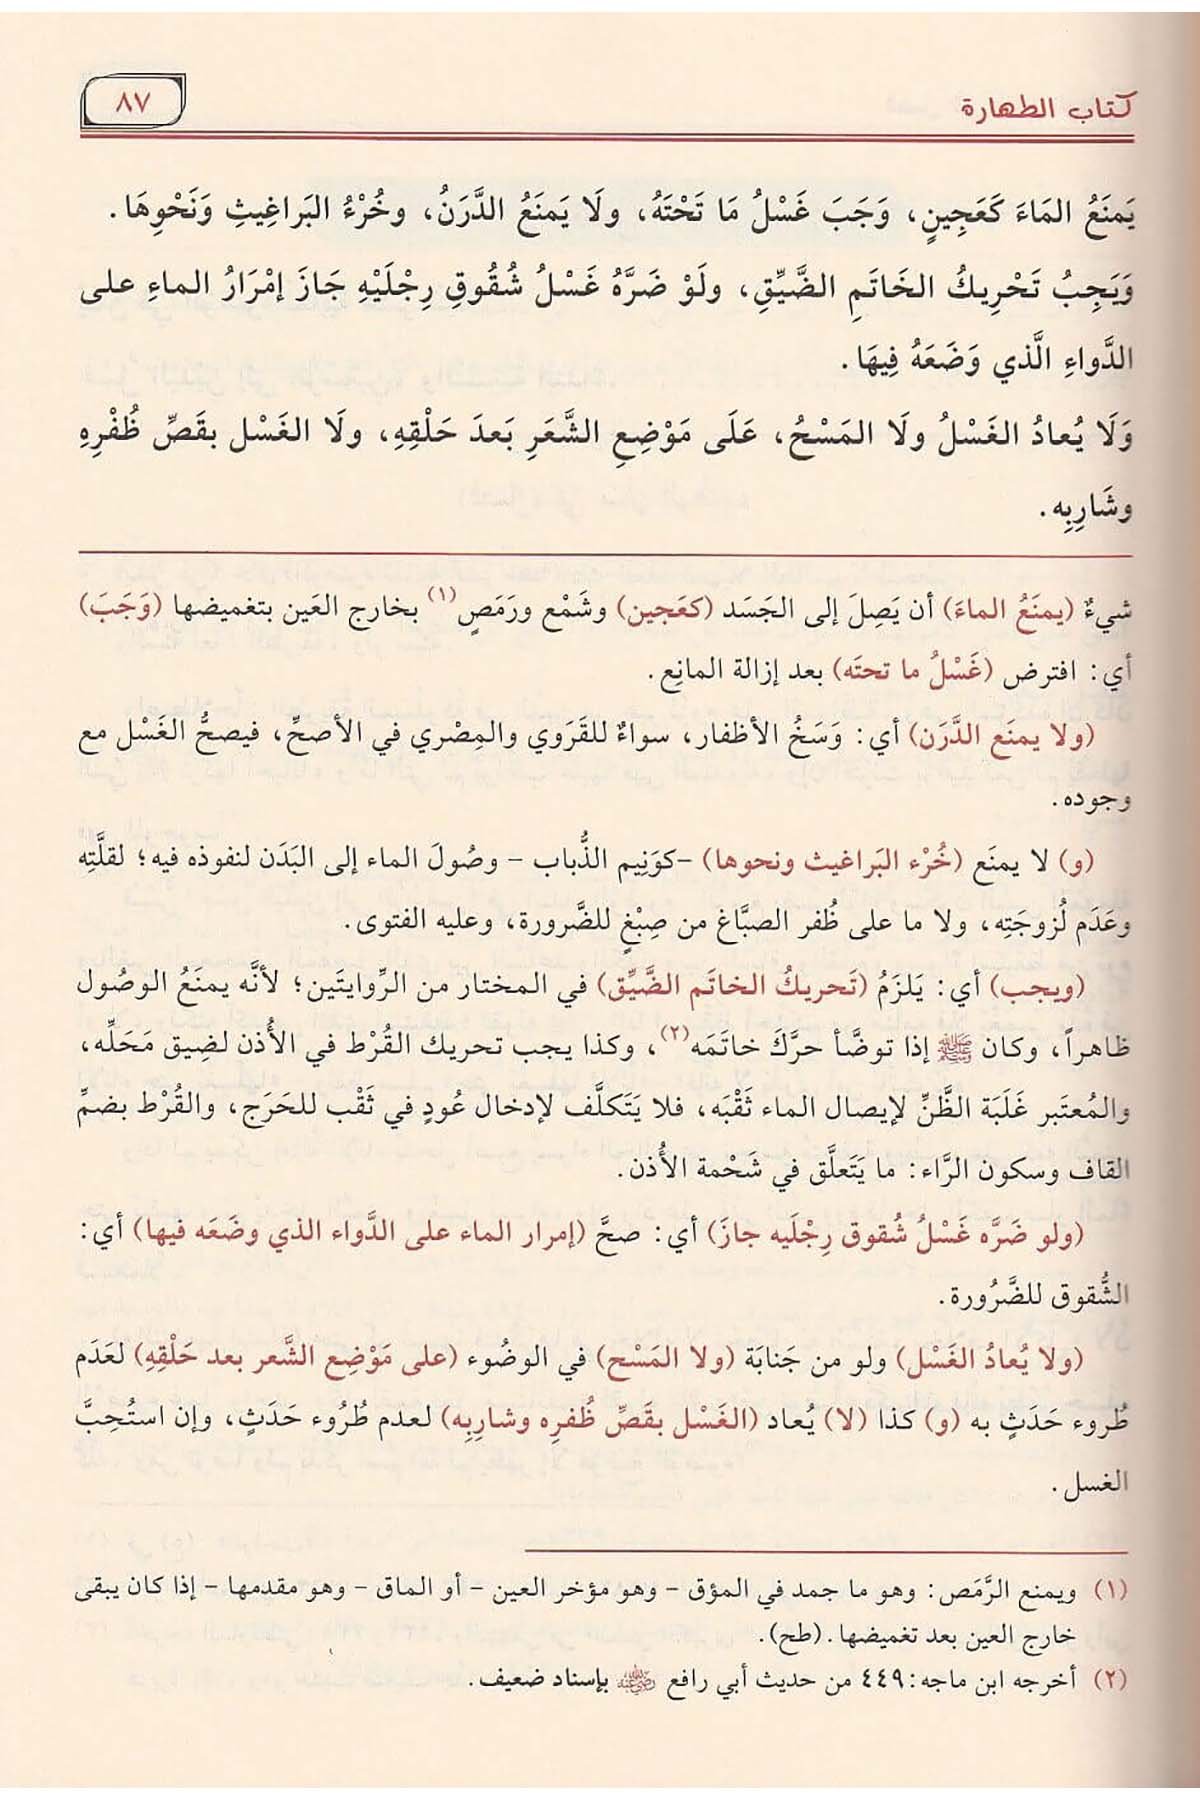 كتاب الطهارة
٨٧
يَمنَعُ المَاءَ كَعَجِينٍ، وَجَبَ غَسْلُ مَا تَحْتَهُ، ولَا يَمنَعُ الدَّرَنُ، وخُرْءُ البَراغِيثِ وَنَحْوِهَا.
وَيَجِبُ تَحْرِيكُ الخَاتَمِ الضَّيِّقِ، ولَوْ ضَرَّهُ غَسْلُ شُقُوقِ رِجْلَيْهِ جَازَ إمْرَارُ الماءِ على
الدَّواءِ الَّذي وَضَعَهُ فِيهَا.
وَلَا يُعادُ الغَسْلُ ولَا المَسْحُ، عَلَى مَوْضِعِ الشَّعَرِ بَعدَ حَلْقِهِ، ولَا الغَسْل بقَصِّ ظُفْرِهِ
وشَارِبِه.
شيءٌ (يمنَعُ الماءَ) أن يَصِلَ إلى الجَسَد (كعَجين) وشَمْع ورَمَصٍ(١) بخارج العَين بتغميضها (وَجَبَ)
أي: افترض (غَسْلُ ما تحتَه) بعد إزالة المانِع.
(ولا يمنَع الدَّرَن) أي: وَسَخُ الأظفار، سواءٌ للقَرَوي والمِصْري في الأصحِّ، فيصحُّ الغَسْل مع
وجوده.
(و) لا يمنَع (خُرْء البَراغيث ونحوها) -كوَنِيم الذُّباب - وصُولَ الماء إلى البَدَن لنفوذه فيه؛ لقلَّتِه
وعَدَم لُزوجَتِه، ولا ما على ظُفر الصبَّاغ من صِبْغٍ للضَّرورة، وعليه الفتوى.
(ويجب) أي: يَلزَمُ (تَحريكُ الخاتَم الضَّيِّق) في المختار من الرِّوايتَين؛ لأنَّه يمنَعُ الوصُول
ظاهراً، وكان ﷺ إذا توضَّأ حرَّكَ خاتَمَه(٢)، وكذا يجب تحريك القُرْط في الأُذن لضِيق مَحَلِّه،
والمُعتَبر غَلَبَة الظَّنِّ لإيصال الماء ثَقْبَه، فلا يَتَكلَّف لإدخال عُودٍ في ثَقْب للحَرَج، والقُرْط بضمِّ
القاف وسكون الرَّاء: ما يَتَعلَّق في شَحْمة الأُذن.
(ولو ضَرَّه غَسْلُ شُقوق رِجْلَيه جازَ) أي: صحَّ (إمرار الماء على الدَّواء الذي وضَعَه فيها) أي:
الشُّقوق للضَّرُورة.
(ولا يُعادُ الغَسْل) ولو من جَنابَة (ولا المَسْح) في الوضُوء (على مَوْضِع الشَّعر بعد حَلْقِهِ) لعَدَم
طُروء حَدَثٍ به (و) كذا (لا) يُعاد (الغَسْل بقَصِّ ظُفره وشاربِه) لعدم طُرُوء حَدَثٍ، وإن استُحِبَّ
الغسل.
(١) ويمنع الرَّمَص: وهو ما جمد في المؤق - وهو مؤخر العين - أو الماق - وهو مقدمها - إذا كان يبقى
خارج العين بعد تغميضها. (طح).
(٢) أخرجه ابن ماجه: ٤٤٩ من حديث أبي رافع رضي الله عنه بإسناد ضعيف.